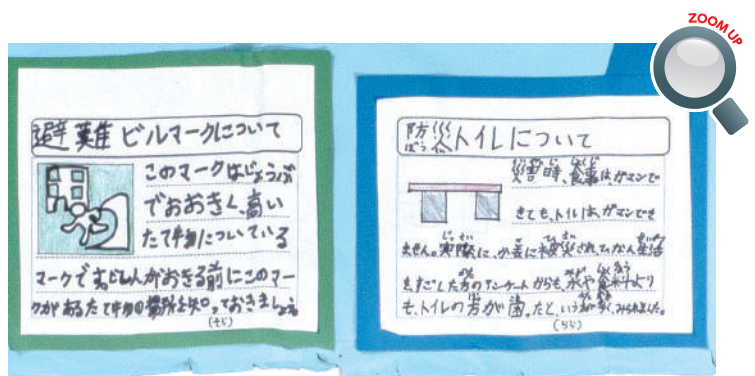 ZOOM UP
避難ビルマークについて
このマークはじょうぶ
でおおきく、高い
たて物についている
マークです。じしんがおきる前にこのマー
クがあるたて物の場所を知っておきましょう
防災トイレについて
災害時、食事は、ガマンで
きても、トイレは、ガマンでき
ません。実際に、か去に被災され、ひなん生活
をすごした方のアンケートからも、水や食料より
も、トイレの方が困ったと、いう声が多く、みられました。